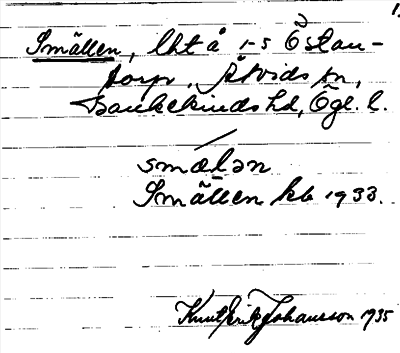 1.
Smällen, lht å 1-5 Östan-
torp, Åtvids sn,
Bankekinds hd, Ögl. l.
smælən
Smällen kb 1933.
Knut Erik Johansson 1935